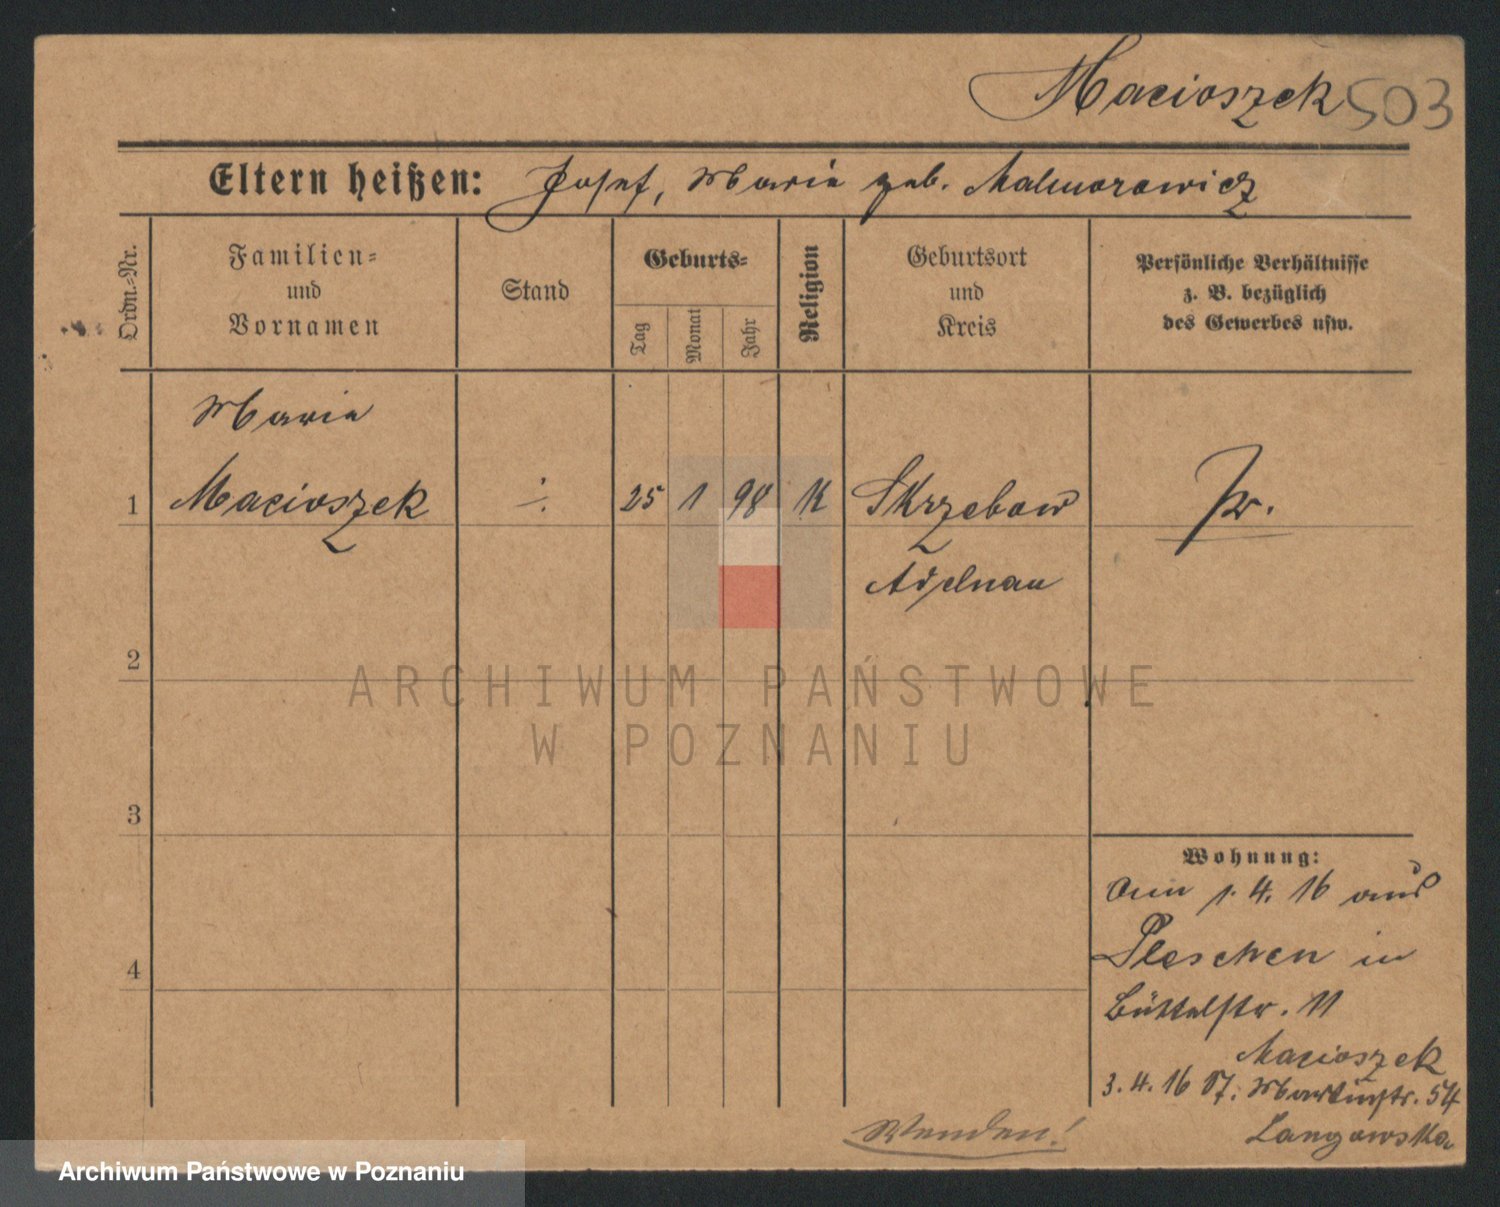 Macioszek 503
Eltern heißen: Josef, Maria geb.
Ordn.-Nr.
Familien-
und
Vornamen
Stand
Geburts-
Tag
Monat
Jahr
Religion
Geburtsort
und
Kreis
Persönliche Verhältnisse
z. B. bezüglich
des Gewerbes usw.
Maria
1 Macioszek ÷ 25 1 98 K Skrzebow Pr.
Adelnau
2
ARCHIWUM PAŃSTWOWE
W POZNANIU
3
4
Wohnung:
1. 4. 16 aus
Pleschen in
Büttelstr. 11
Macioszek
3. 4. 16 Martinstr. 54
Langowska
Wenden!
Archiwum Państwowe w Poznaniu